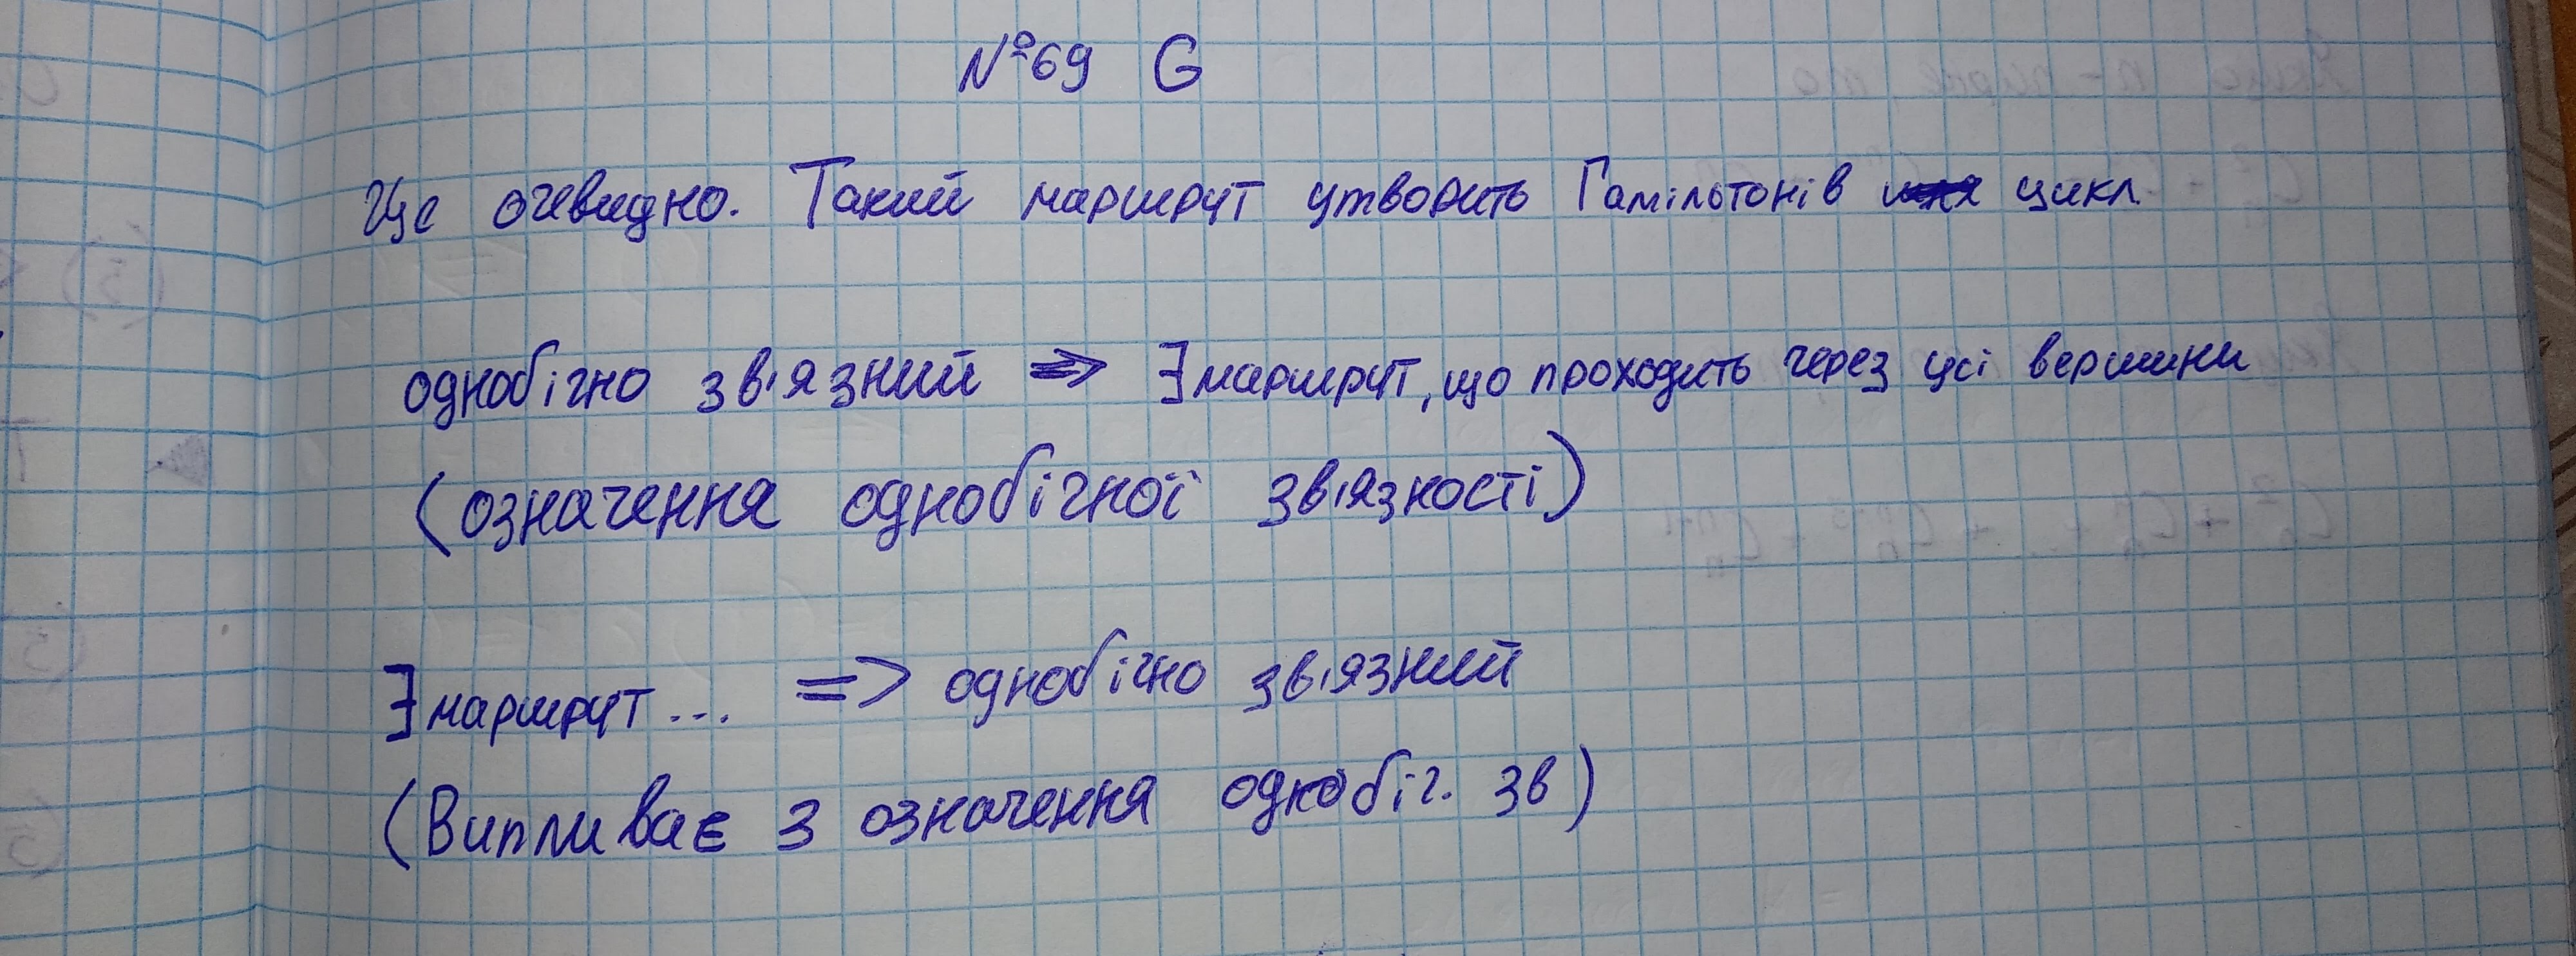 №69 G
Це очевидно. Такий маршрут утворить Гамільтонів цикл
однобічно зв'язний => ∃ маршрут, що проходить через усі вершини
(означення однобічної зв'язності)
∃ маршрут ... => однобічно зв'язний
(Випливає з означення однобіч. зв)